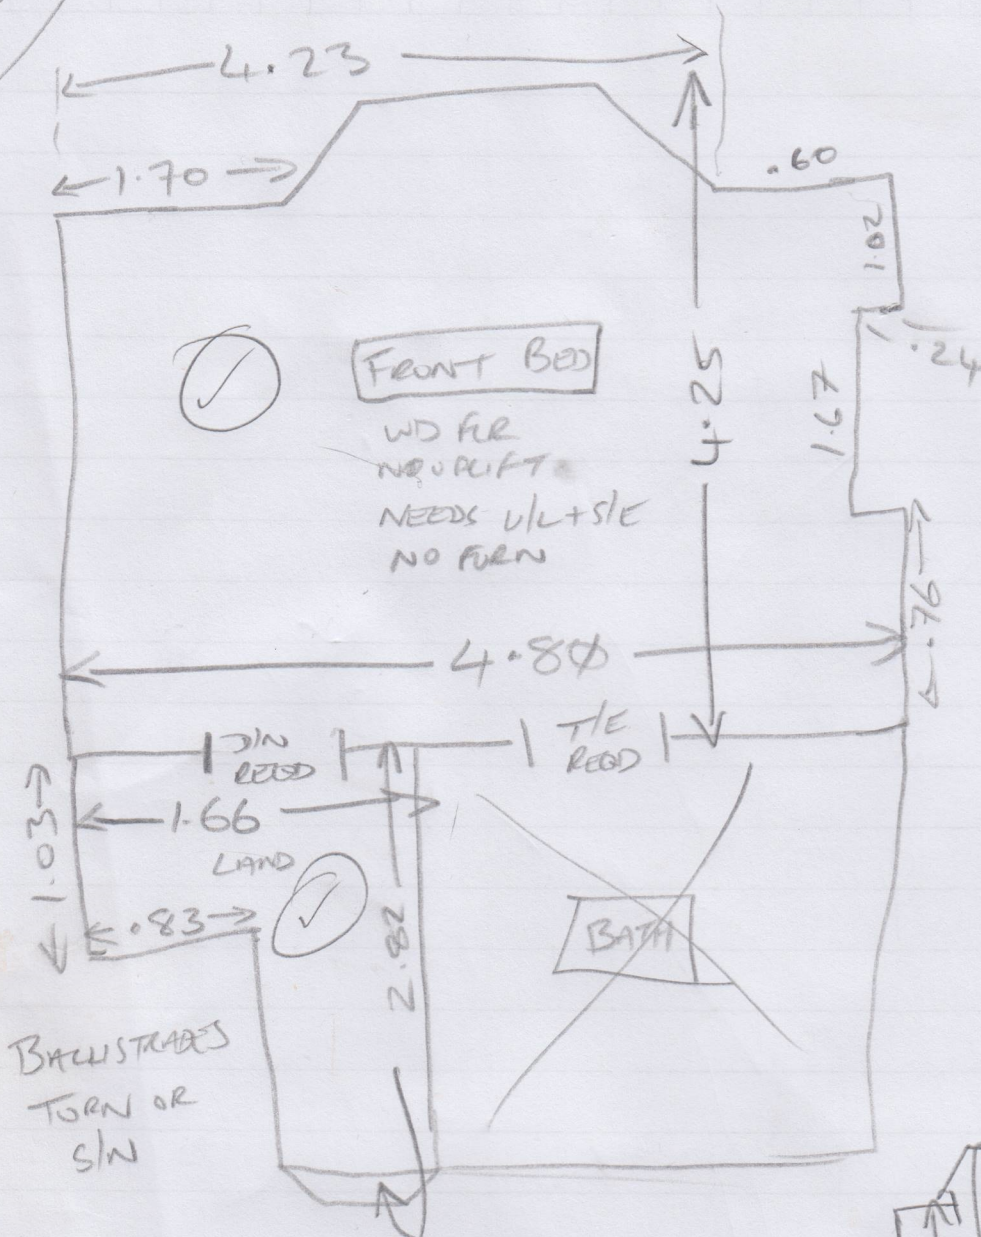 4.23
1.70
.60
1.02
.24
FRONT BED
WD FLR
NO UPLIFT
NEEDS U/L + S/E
NO FURN
4.25
1.67
.76
4.80
D/N
REQD
T/E
REQD
1.03
1.66
LAND
.83
2.82
BATH
BALLISTRADES
TURN OR
S/N